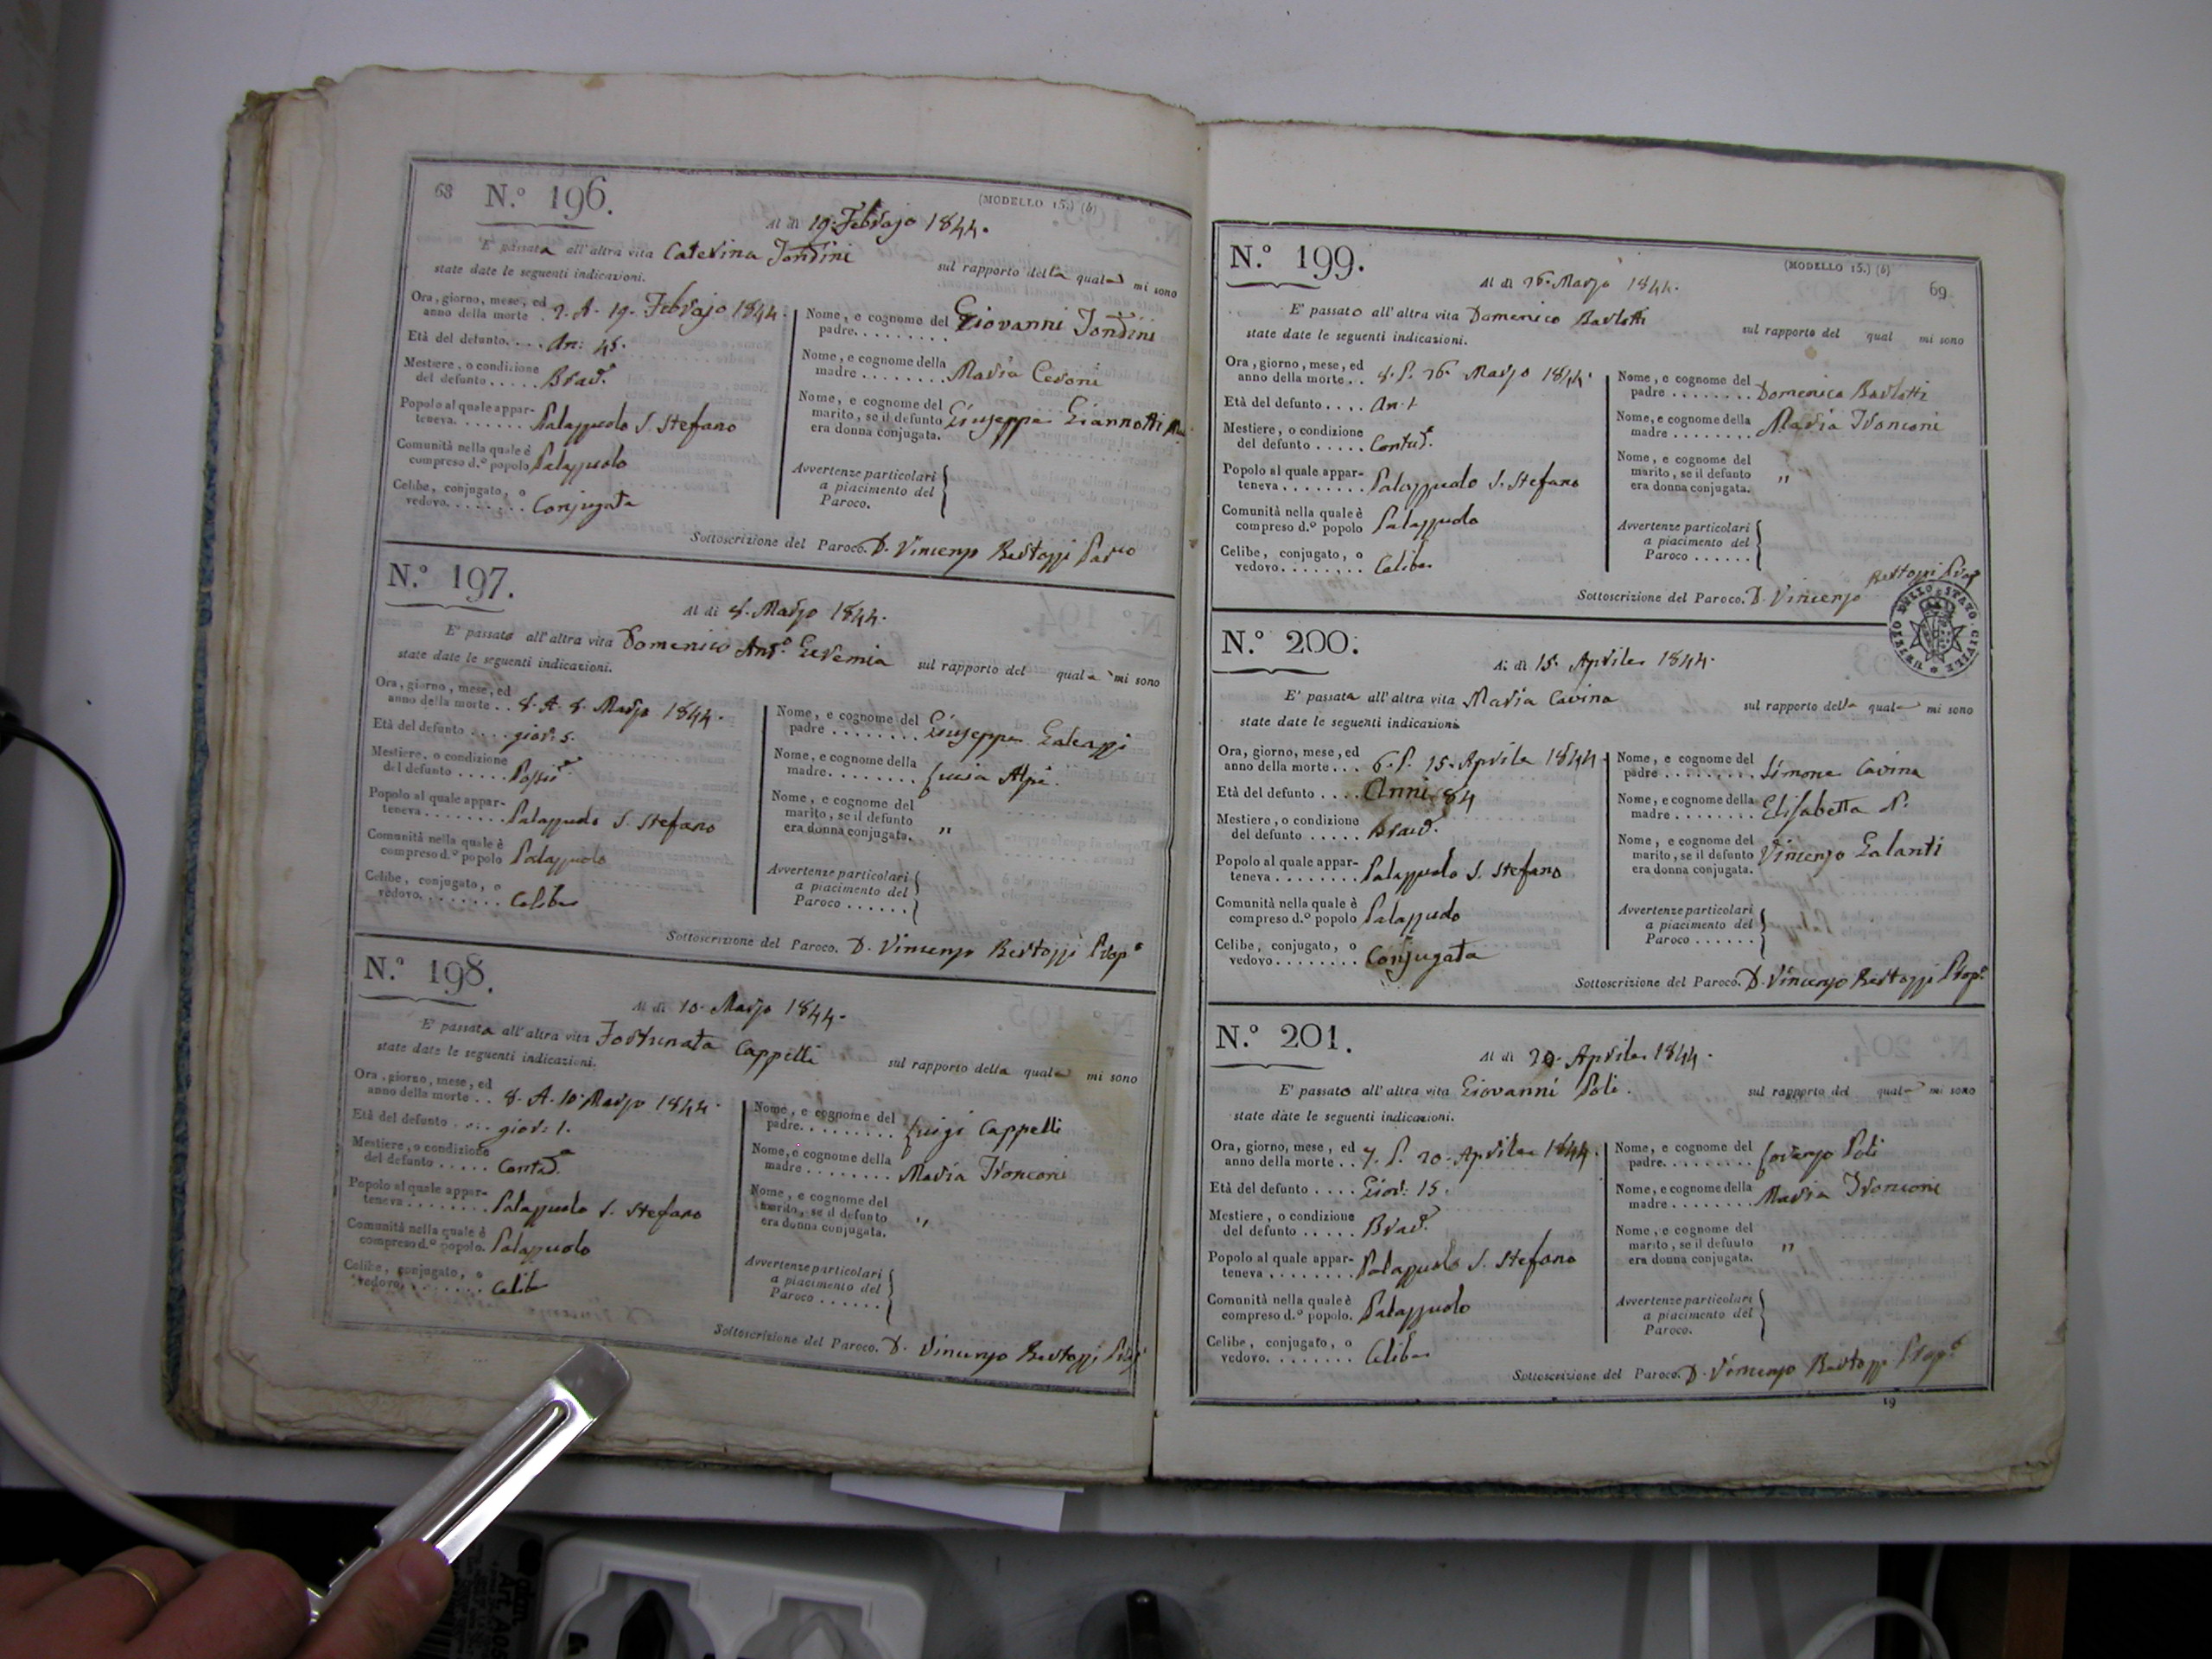 68 N.º 196. (MODELLO 15.) (b)
Al dì 19. Febrajo 1844.
E' passata all'altra vita Caterina Tondini sul rapporto della quale mi sono
state date le seguenti indicazioni.
Ora, giorno, mese, ed
anno della morte . 2. A. 19. Febrajo 1844.
Età del defunto. . . . An: 45.
Mestiere, o condizione
del defunto . . . . . Brac.e
Popolo al quale appar-
teneva. . . . . . . Palazzuolo S. Stefano
Comunità nella quale è
compreso d.º popolo Palazzuolo
Celibe, conjugato, o
vedovo. . . . . . . . Conjugata
Nome, e cognome del
padre. . . . . . . . Giovanni Tondini
Nome, e cognome della
madre . . . . . . . . Maria Ceroni
Nome, e cognome del
marito, se il defunto
era donna conjugata. Giuseppe Giannotti
Avvertenze particolari
a piacimento del
Paroco.
Sottoscrizione del Paroco. D. Vincenzo Bertozzi
N.º 197.
Al dì 8. Marzo 1844.
E' passato all'altra vita Domenico Ant.o sul rapporto del quale mi sono
state date le seguenti indicazioni.
Ora, giorno, mese, ed
anno della morte . . 8. A. 8. Marzo 1844.
Età del defunto . . . . gior: 5.
Mestiere, o condizione
del defunto . . . . . Possid.e
Popolo al quale appar-
teneva . . . . . . . . Palazzuolo S. Stefano
Comunità nella quale è
compreso d.º popolo Palazzuolo
Celibe, conjugato, o
vedovo. . . . . . . . Celibe
Nome, e cognome del
padre . . . . . . . . Giuseppe Galeazzi
Nome, e cognome della
madre. . . . . . . . Lucia Alpi.
Nome, e cognome del
marito, se il defunto
era donna conjugata. "
Avvertenze particolari
a piacimento del
Paroco . . . . . .
Sottoscrizione del Paroco. D. Vincenzo Bertozzi Prop.o
N.º 198.
Al dì 10. Marzo 1844.
E' passata all'altra vita Fortunata Cappelli sul rapporto della quale mi sono
state date le seguenti indicazioni.
Ora, giorno, mese, ed
anno della morte . . 8. A. 10. Marzo 1844.
Età del defunto . . . . gior: 1.
Mestiere, o condizione
del defunto . . . . . Contad.e
Popolo al quale appar-
teneva . . . . . . . . Palazzuolo S. Stefano
Comunità nella quale è
compreso d.º popolo. Palazzuolo
Celibe, conjugato, o
vedovo. . . . . . . . Celibe
Nome, e cognome del
padre. . . . . . . . . Luigi Cappelli
Nome, e cognome della
madre . . . . . . . Maria Tronconi
Nome, e cognome del
marito, se il defunto
era donna conjugata. "
Avvertenze particolari
a piacimento del
Paroco . . . . . .
Sottoscrizione del Paroco. D. Vincenzo Bertozzi
N.º 199. (MODELLO 15.) (b) 69
Al dì 26. Marzo 1844.
E' passato all'altra vita Domenico Barlotti sul rapporto del qual mi sono
state date le seguenti indicazioni.
Ora, giorno, mese, ed
anno della morte . . 8. P. 26. Marzo 1844.
Età del defunto . . . . An. 1
Mestiere, o condizione
del defunto . . . . . Contad.e
Popolo al quale appar-
teneva . . . . . . . . Palazzuolo S. Stefano
Comunità nella quale è
compreso d.º popolo Palazzuolo
Celibe, conjugato, o
vedovo. . . . . . . . Celibe
Nome, e cognome del
padre . . . . . . . . Domenico Barlotti
Nome, e cognome della
madre . . . . . . . . Maria Tronconi
Nome, e cognome del
marito, se il defunto
era donna conjugata. "
Avvertenze particolari
a piacimento del
Paroco . . . . . .
Sottoscrizione del Paroco. D. Vincenzo Bertozzi Prop.
UFFIZIO DELLO STATO CIVILE
N.º 200.
Al dì 15. Aprile 1844.
E' passata all'altra vita Maria Cavina sul rapporto della quale mi sono
state date le seguenti indicazioni
Ora, giorno, mese, ed
anno della morte . . . 6. P. 15. Aprile 1844.
Età del defunto . . . . Anni 84
Mestiere, o condizione
del defunto . . . . . Brac.e
Popolo al quale appar-
teneva . . . . . . . . Palazzuolo S. Stefano
Comunità nella quale è
compreso d.º popolo Palazzuolo
Celibe, conjugato, o
vedovo. . . . . . . . Conjugata
Nome, e cognome del
padre . . . . . . . . . Simone Cavina
Nome, e cognome della
madre . . . . . . . . Elisabetta N.
Nome, e cognome del
marito, se il defunto
era donna conjugata. Vincenzo Galanti
Avvertenze particolari
a piacimento del
Paroco . . . . . .
Sottoscrizione del Paroco. D. Vincenzo Bertozzi Prop.o
N.º 201.
Al dì 20. Aprile 1844.
E' passato all'altra vita Giovanni Poli. sul rapporto del quale mi sono
state date le seguenti indicazioni.
Ora, giorno, mese, ed
anno della morte . . 7. P. 20. Aprile 1844.
Età del defunto . . . . Gior: 15.
Mestiere, o condizione
del defunto . . . . . Brac.e
Popolo al quale appar-
teneva . . . . . . . . Palazzuolo S. Stefano
Comunità nella quale è
compreso d.º popolo. Palazzuolo
Celibe, conjugato, o
vedovo. . . . . . . . Celibe
Nome, e cognome del
padre. . . . . . . . . Lorenzo Poli
Nome, e cognome della
madre . . . . . . . . Maria Tronconi
Nome, e cognome del
marito, se il defunto
era donna conjugata. "
Avvertenze particolari
a piacimento del
Paroco.
Sottoscrizione del Paroco. D. Vincenzo Bertozzi Prop.o
19